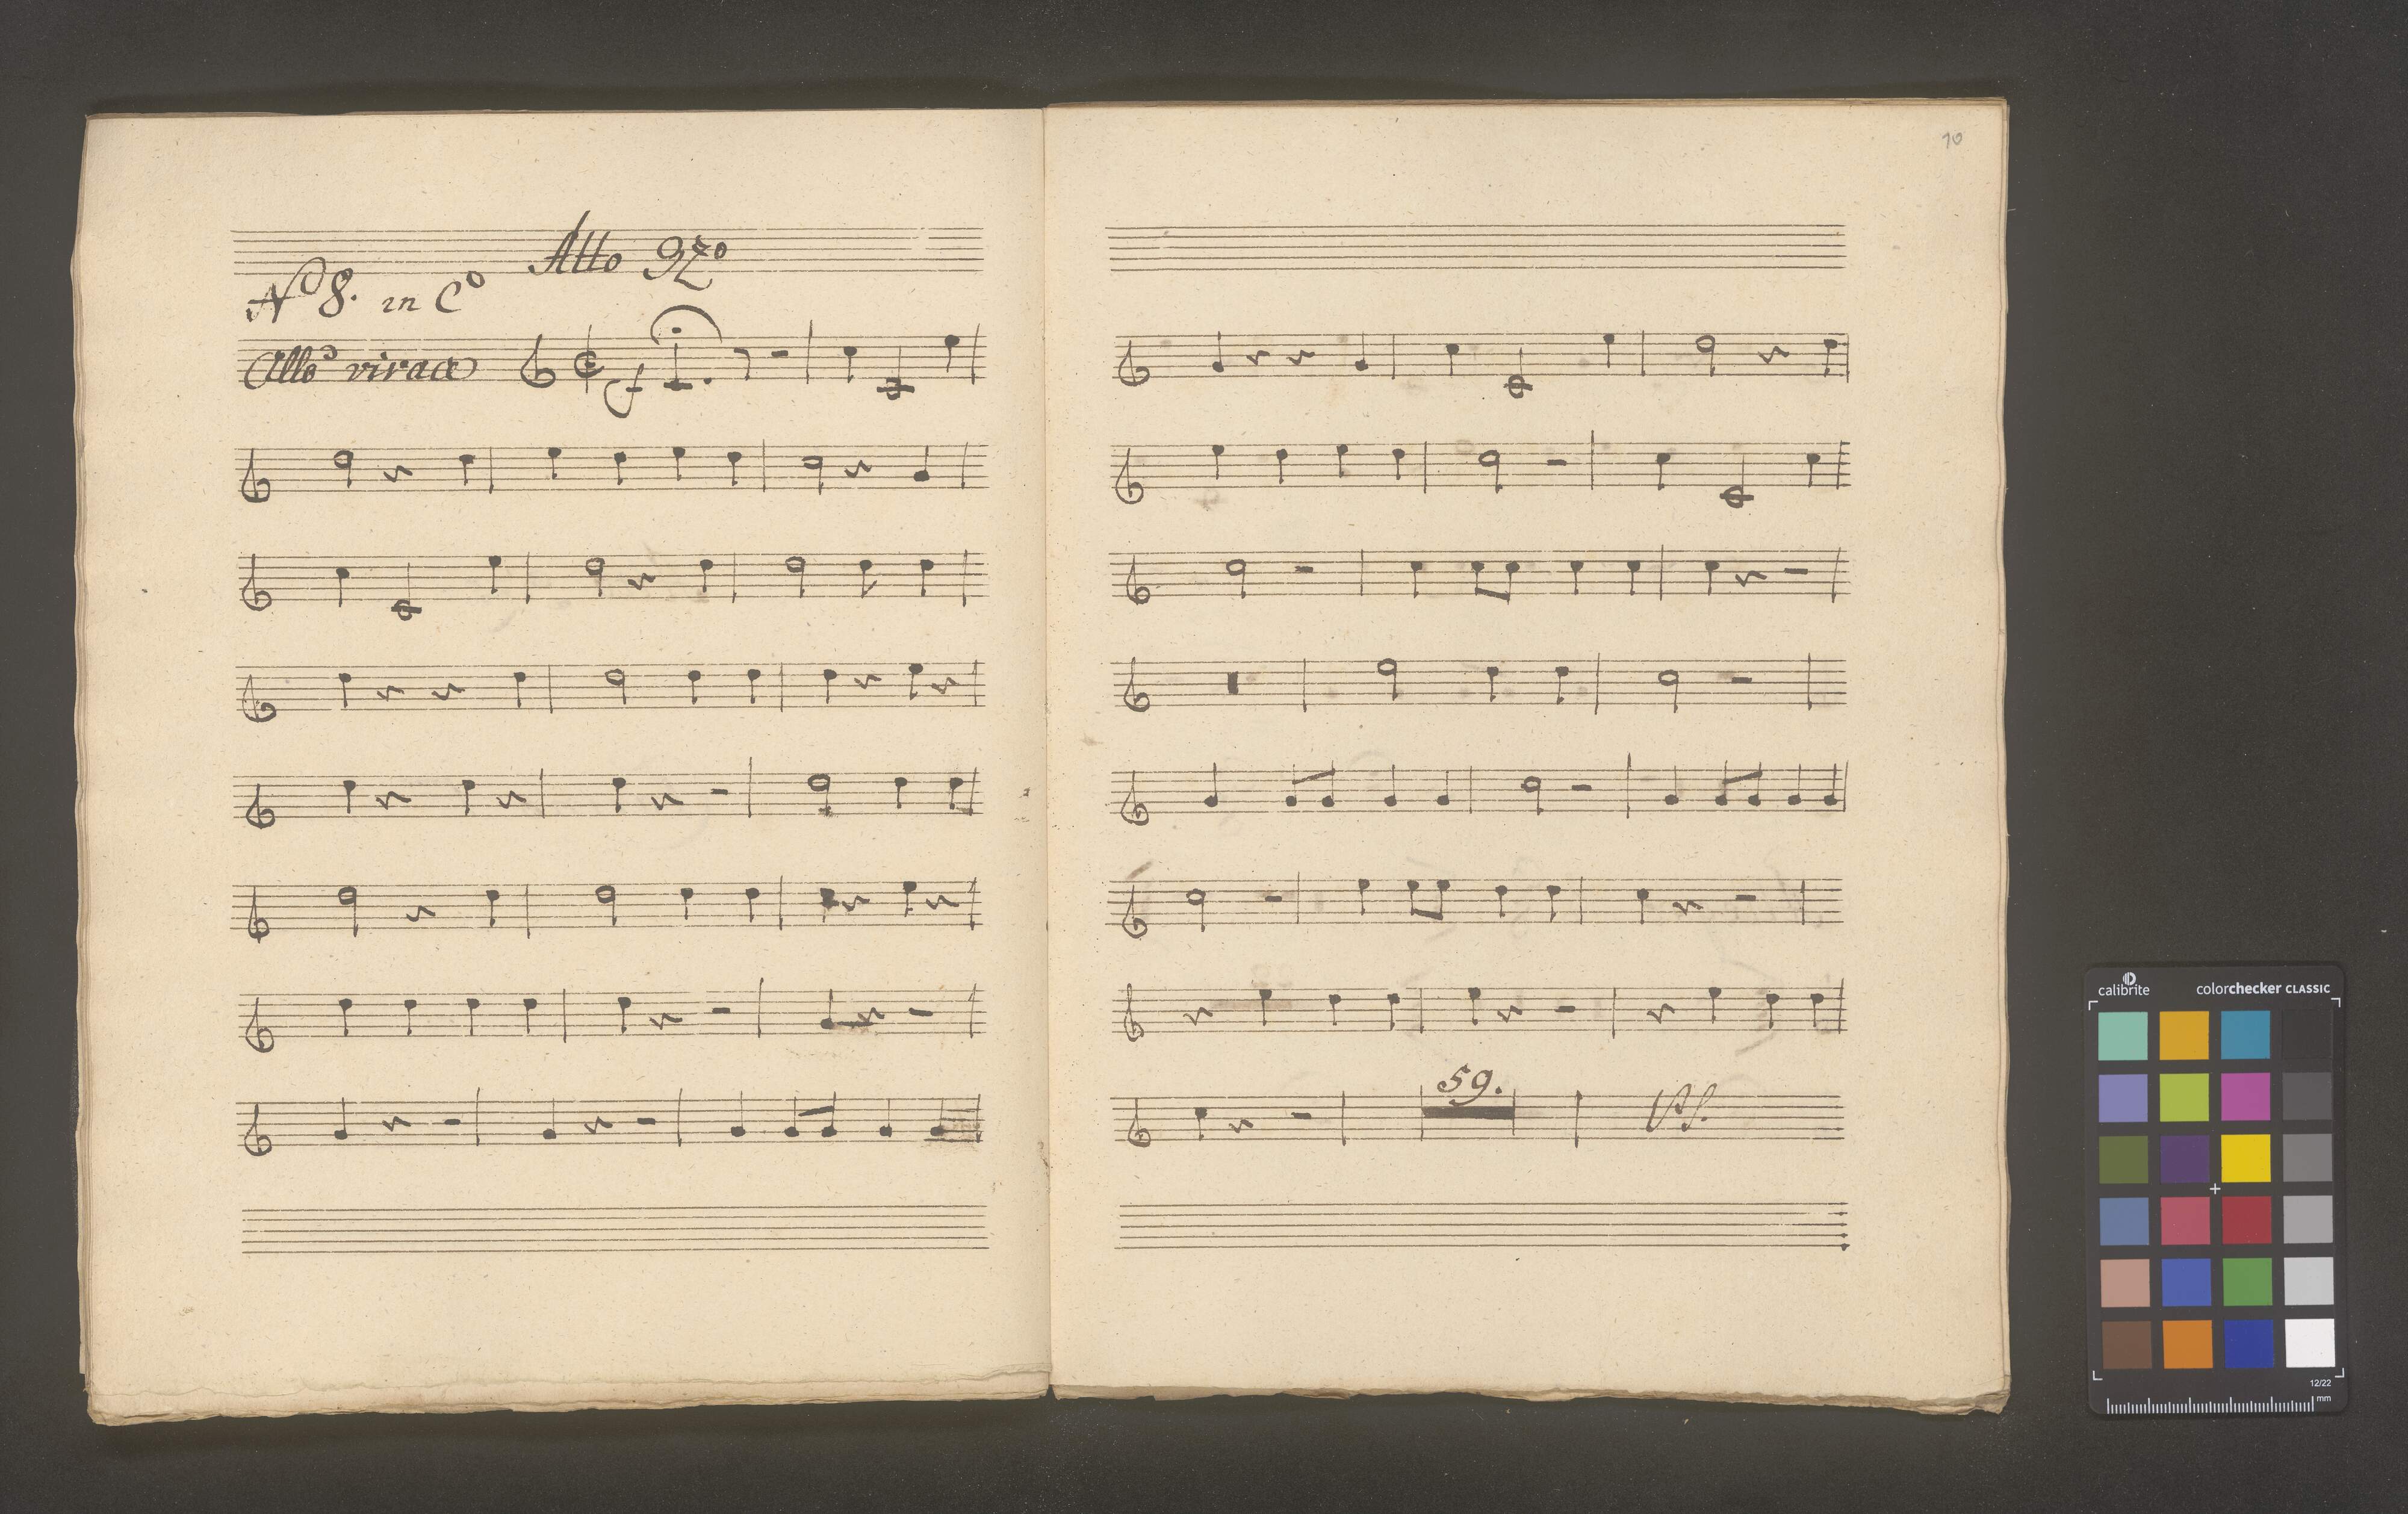 Atto 2do
No 8. in C
Allo vivace
f
10
59.
VS.
calibrite
colorchecker CLASSIC
12/22
mm